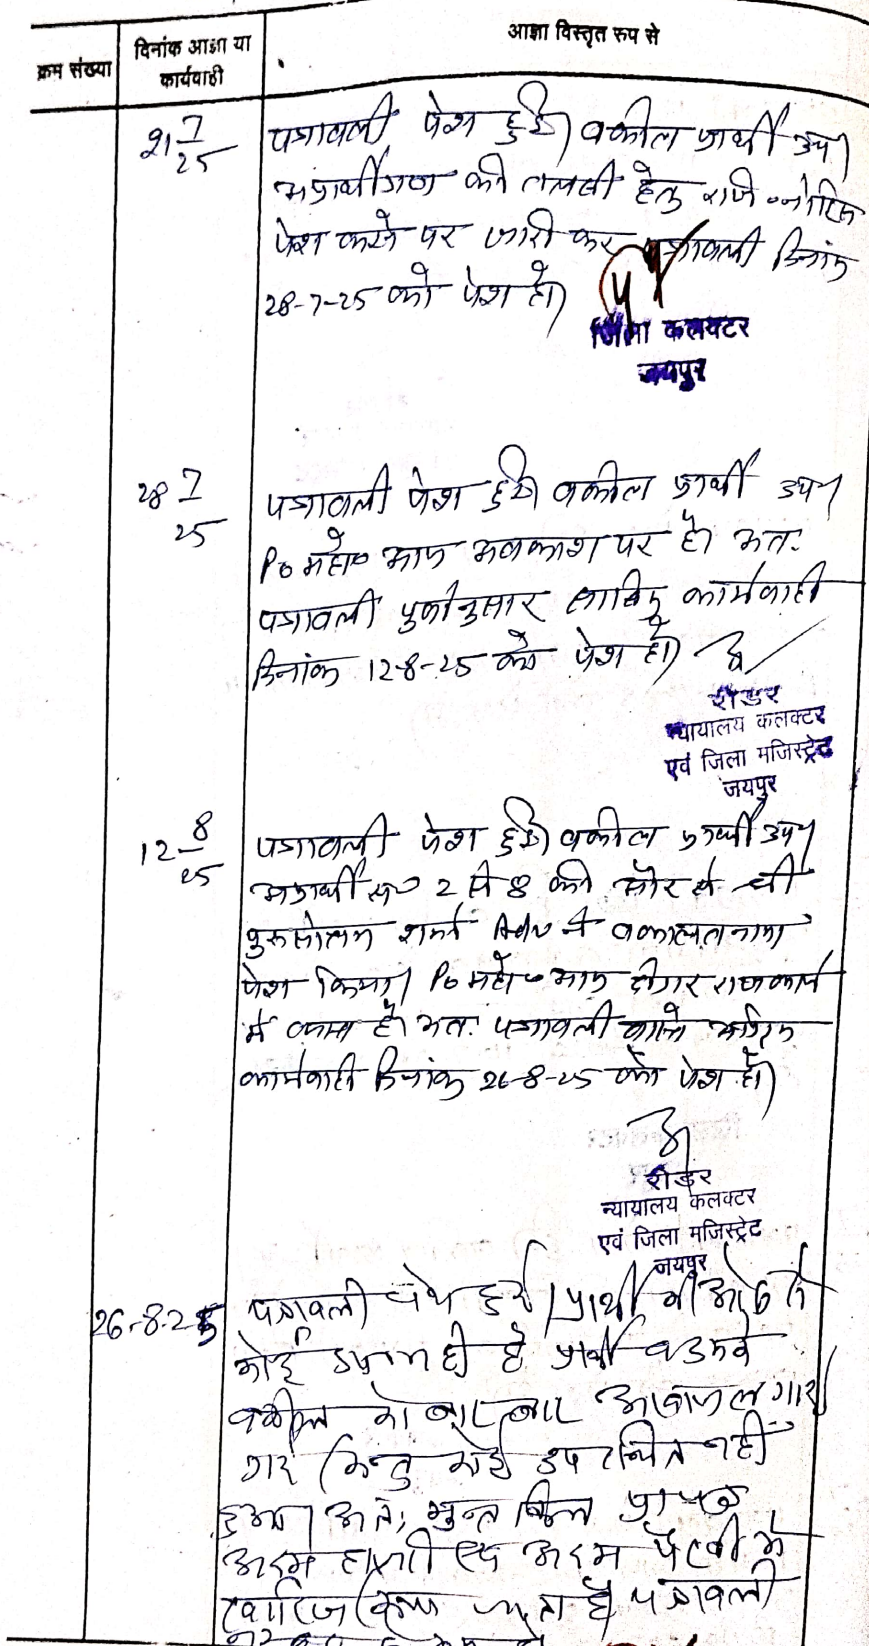 क्रम संख्या
दिनांक आज्ञा या
कार्यवाही
आज्ञा विस्तृत रूप से
21 7/25
पत्रावली पेश हुई। वकील प्रार्थी उप।
अप्रार्थीगण की तलबी हेतु रजि॰ नोटिस
पेश करने पर जारी कर पत्रावली दिनांक
28-7-25 को पेश हो।
जिला कलक्टर
जयपुर
28 7/25
पत्रावली पेश हुई। वकील प्रार्थी उप।
Po महो॰ आज अवकाश पर है। अतः
पत्रावली पूर्वानुसार कार्यवाही
दिनांक 12-8-25 को पेश हो।
रीडर
न्यायालय कलक्टर
एवं जिला मजिस्ट्रेट
जयपुर
12 8/25
पत्रावली पेश हुई। वकील प्रार्थी उप।
अप्रार्थी सं॰ 2 से 8 की ओर से श्री
पुरुषोत्तम शर्मा ने वकालतनामा
पेश किया। Po महो॰ आज दीगर राजकार्य
में व्यस्त है। अतः पत्रावली वास्ते अग्रिम
कार्यवाही दिनांक 26-8-25 को पेश हो।
रीडर
न्यायालय कलक्टर
एवं जिला मजिस्ट्रेट
जयपुर
26-8-25
पत्रावली पेश हुई। प्रार्थी की ओर से
कोई उप॰ नही है प्रार्थी व उनके
वकील को बार बार आवाज लगाई
गई किन्तु कोई उपस्थित नहीं
हुआ। अतः
अदम हाजरी एवं अदम पैरवी में
खारिज किया जाता है पत्रावली